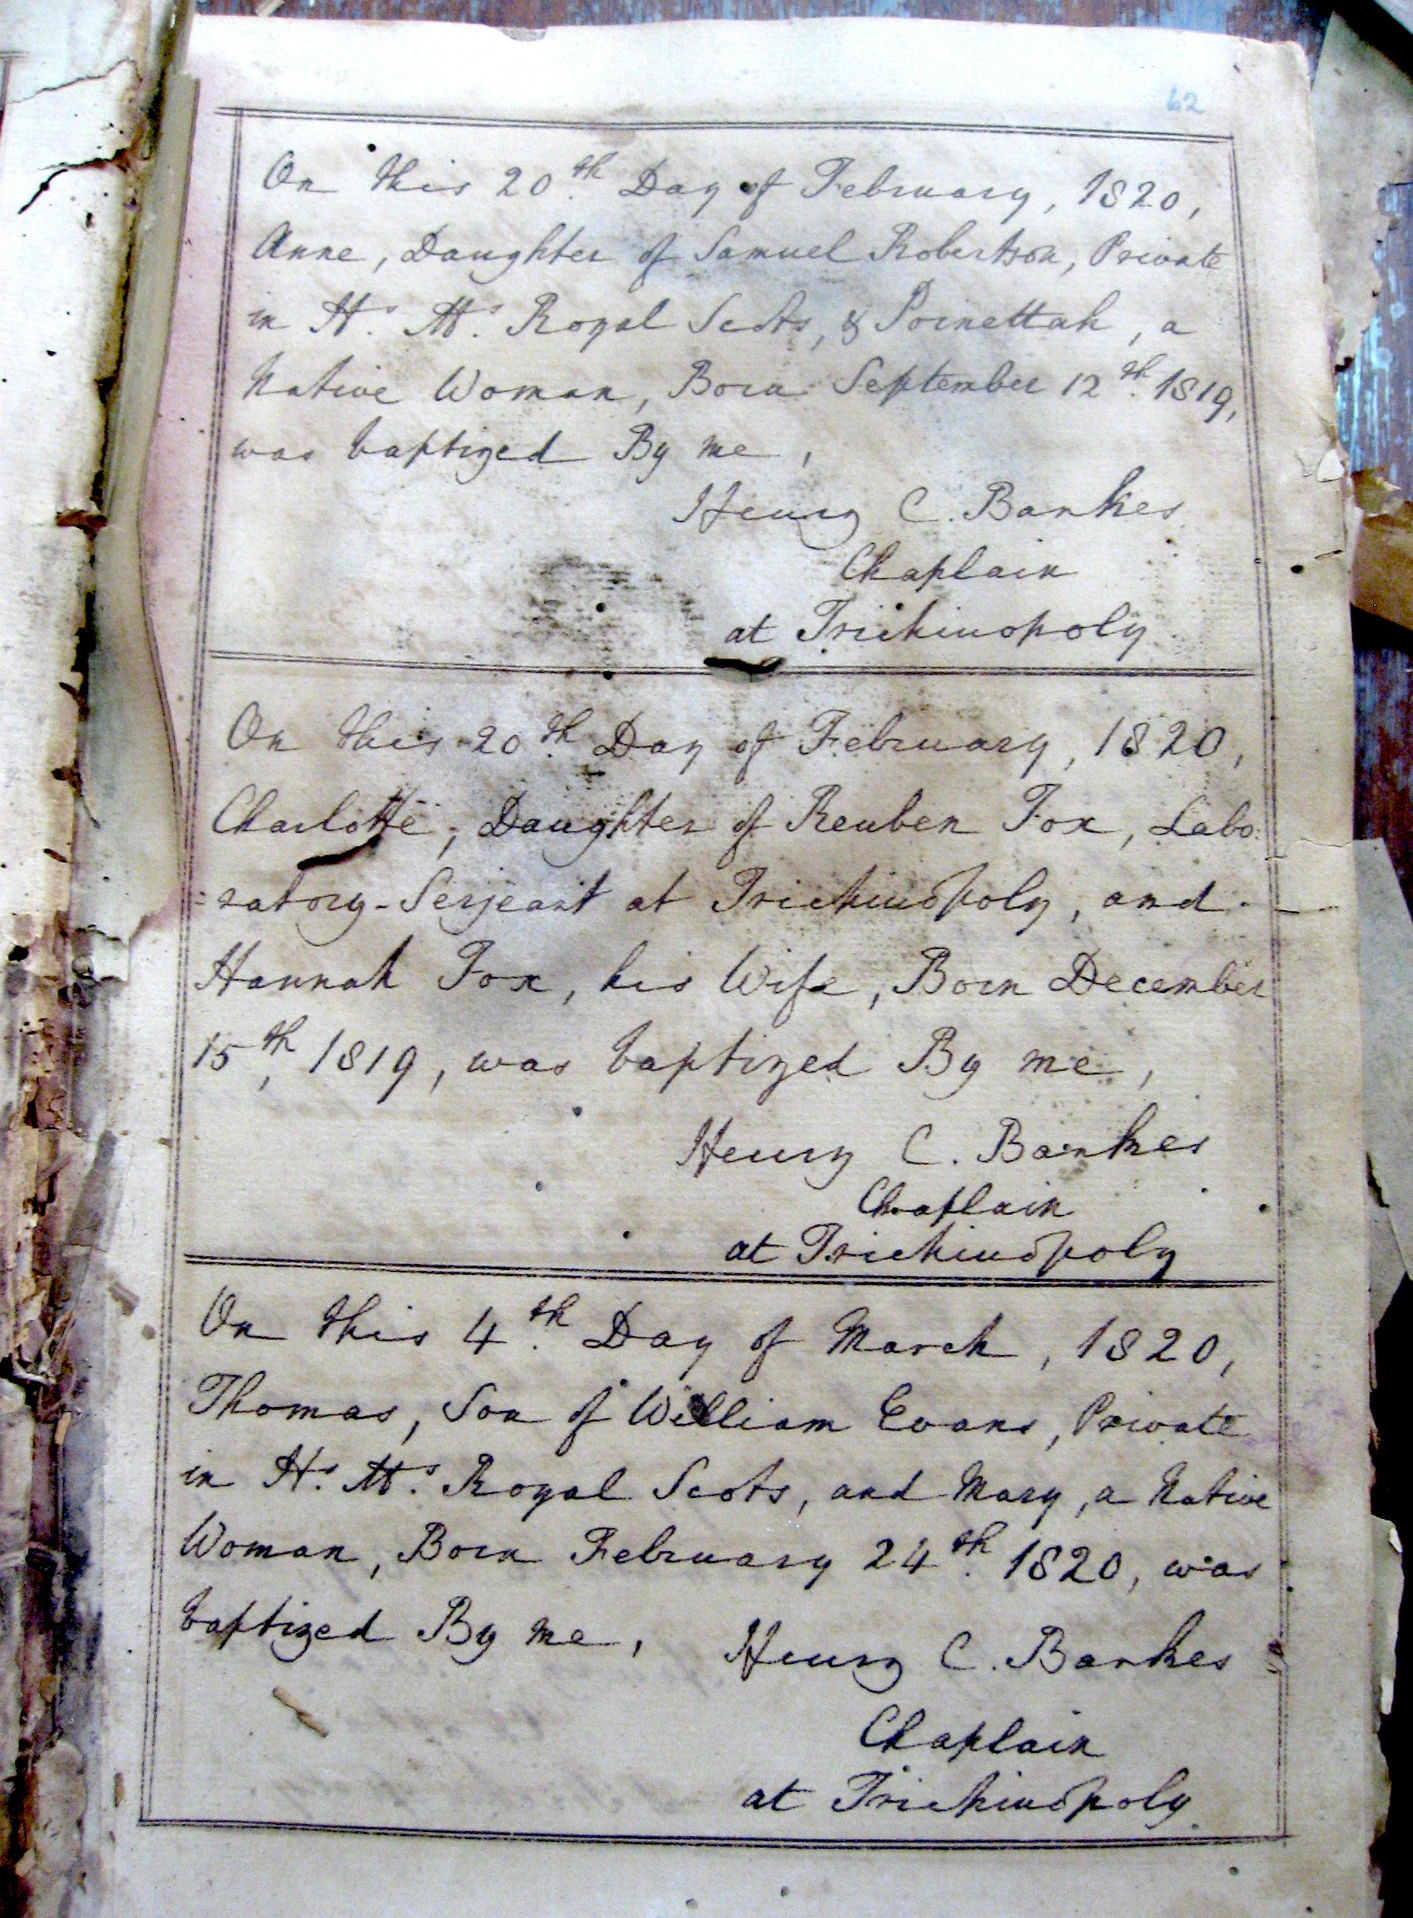 62
On this 20th Day of February, 1820,
Anne, Daughter of Samuel Robertson, Private
in H.s M.s Royal Scots, & Poinettah, a
Native Woman, Born September 12th. 1819,
was baptized By me,
Henry C. Bankes
Chaplain
at Trichinopoly
On this 20th Day of February, 1820,
Charlotte, Daughter of Reuben Fox, Labo=
=ratory-Serjeant at Trichinopoly, and
Hannah Fox, his Wife, Born December
15th, 1819, was baptized By me,
Henry C. Bankes
Chaplain
at Trichinopoly
On this 4th. Day of March, 1820,
Thomas, Son of William Evans, Private
in H.s M.s Royal Scots, and Mary, a Native
Woman, Born February 24th. 1820, was
baptized By me,
Henry C. Bankes
Chaplain
at Trichinopoly.